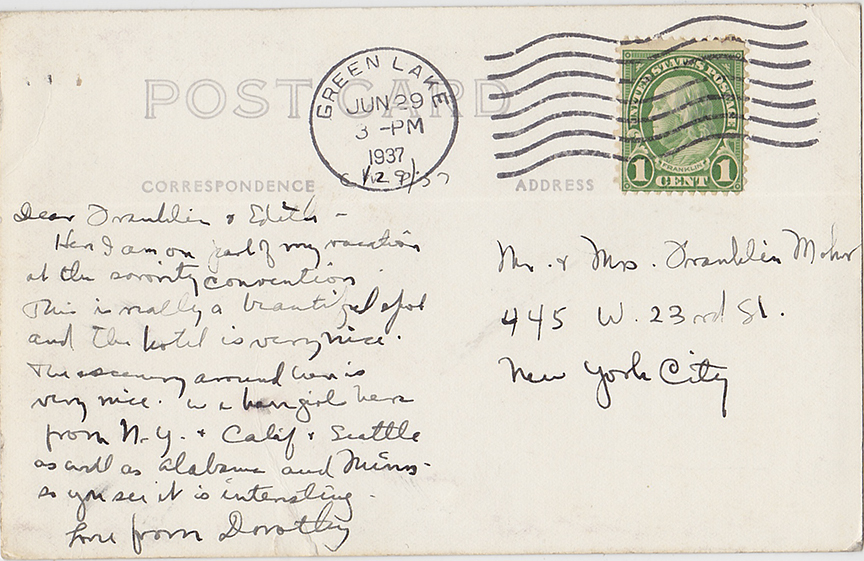 POST CARD
GREEN LAKE
JUN 29
3 -PM
1937
UNITED STATES POSTAGE
FRANKLIN
1 CENT 1
CORRESPONDENCE
ADDRESS
6/29/37
Dear Franklin & Edith -
Here I am on part of my vacation
at the sorority convention.
This is really a beautiful spot
and the hotel is very nice.
The scenery around here is
very nice. We have girls here
from N.Y. & Calif & Seattle
as well as Alabama and Minn-
so you see it is interesting.
Love from Dorothy
Mr. & Mrs. Franklin Mohr
445 W. 23rd St.
New York City